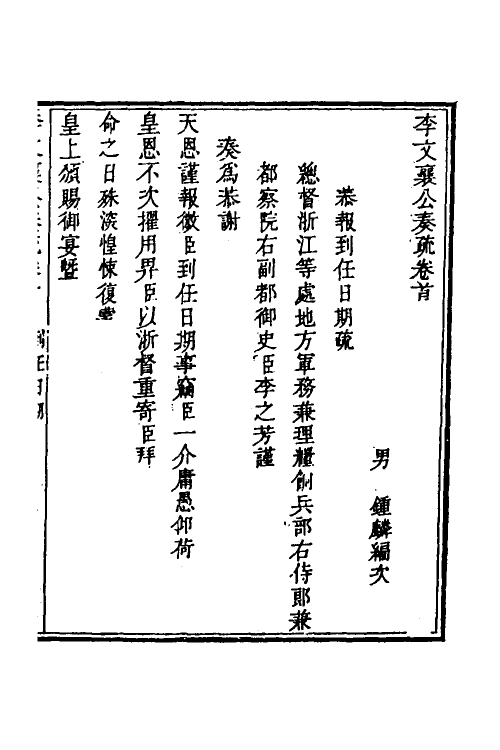 李文襄公奏疏卷首
男　鍾麟編次
恭報到任日期疏
總督浙江等處地方軍務兼理糧餉兵部右侍郎兼
都察院右副都御史臣李之芳謹
奏爲恭謝
天恩謹報微臣到任日期事竊臣一介庸愚仰荷
皇恩不次擢用畀臣以浙督重寄臣拜
命之日殊深惶悚復蒙
皇上頒賜御宴曁